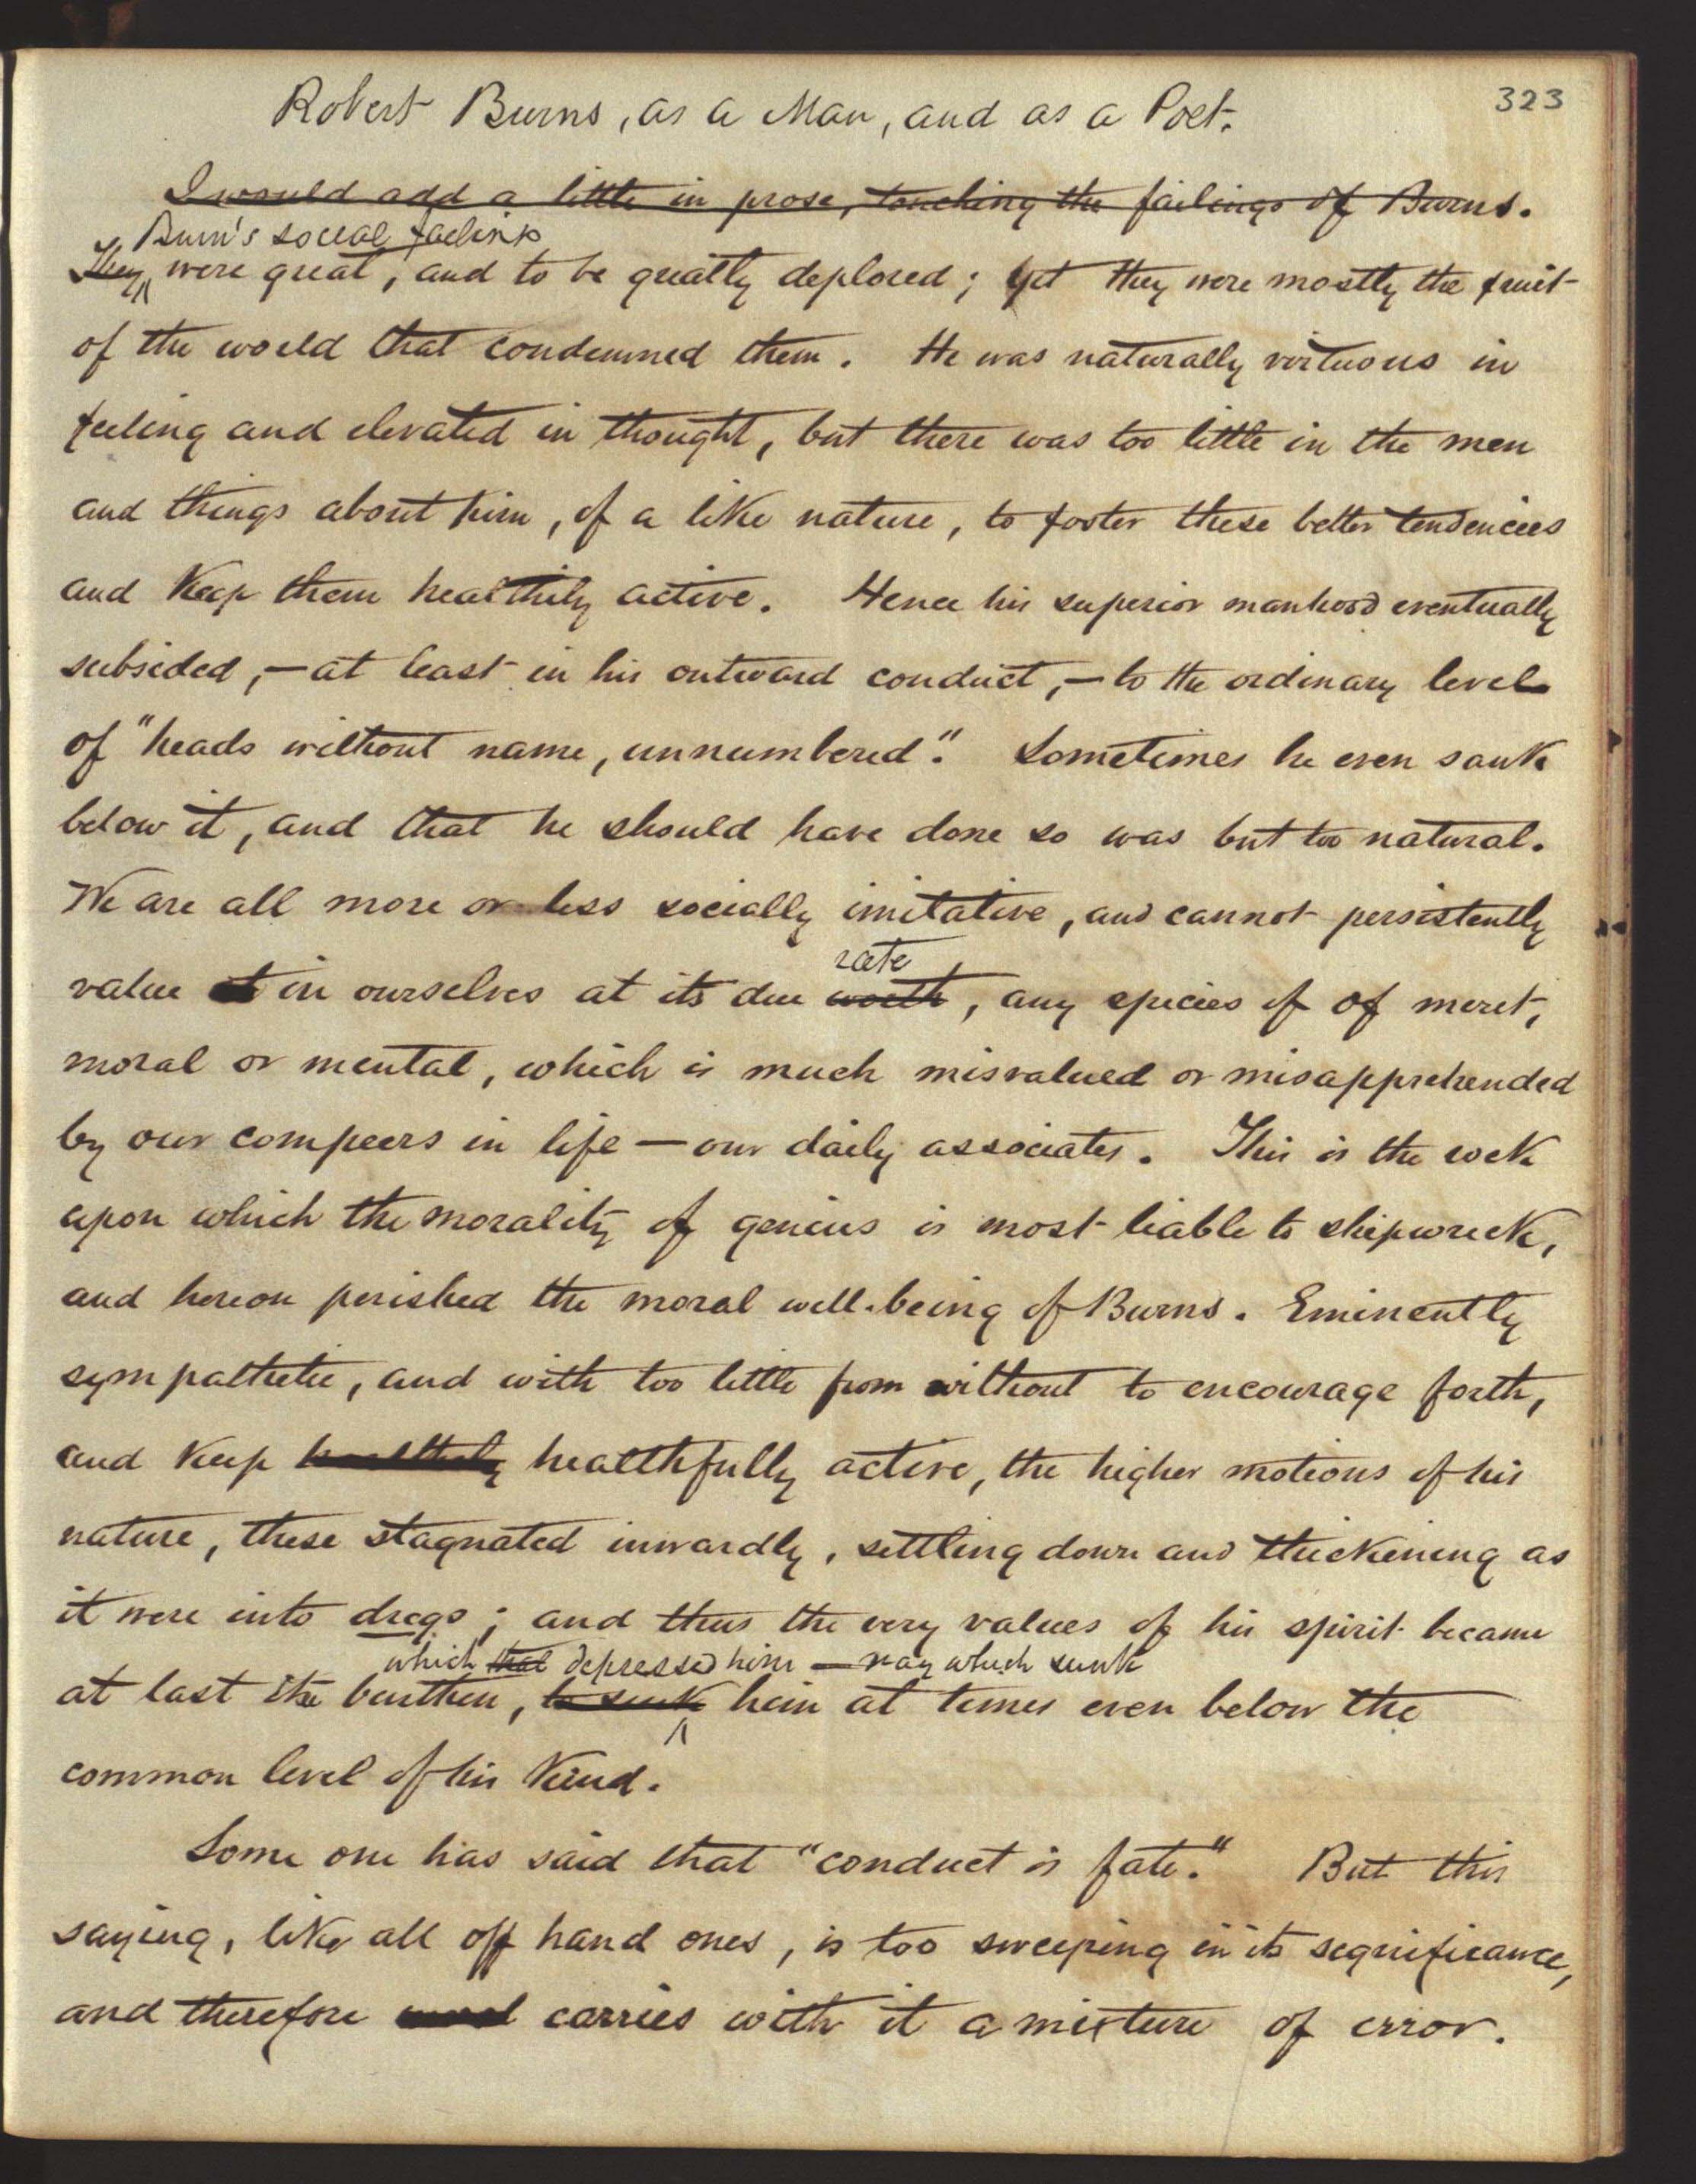 323
Robert Burns, as a Man, and as a Poet.
I would add a little in prose, touching the failings of Burns.
Burn's social failings
They were great, and to be greatly deplored; yet they were mostly the fruit
of the world that condemned them. He was naturally virtuous in
feeling and elevated in thought, but there was too little in the men
and things about him, of a like nature, to foster these better tendencies
and keep them healthily active. Hence his superior manhood eventually
subsided,—at least in his outward conduct,—to the ordinary level
of "heads without name, unnumbered". Sometimes he even sank
below it, and that he should have done so was but too natural.
We are all more or less socially imitative, and cannot persistently
rate
value in ourselves at its due worth, any species of of merit,
moral or mental, which is much misvalued or misapprehended
by our compeers in life—our daily associates. This is the rock
upon which the morality of genius is most liable to shipwreck,
and hereon perished the moral well-being of Burns. Eminently
sympathetic, and with too little from without to encourage forth,
and keep healthily healthfully active, the higher motions of his
nature, these stagnated inwardly, settling down and thickening as
it were into dregs; and thus the very values of his spirit became
which that depressed him — nay which sunk
at last the burthen, to sink him at times even below the
common level of his kind.
Some one has said that "conduct is fate." But this
saying, like all off hand ones, is too sweeping in its significance,
and therefore carries with it a mixture of error.